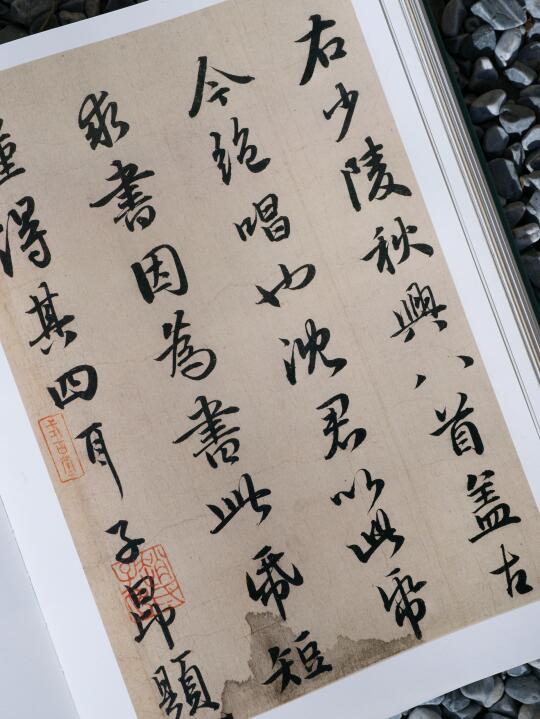 右少陵秋興八首盖古
今絶唱也沈君以此帋
求書因為書此帋短
僅得其四耳子昂題
趙氏子昂